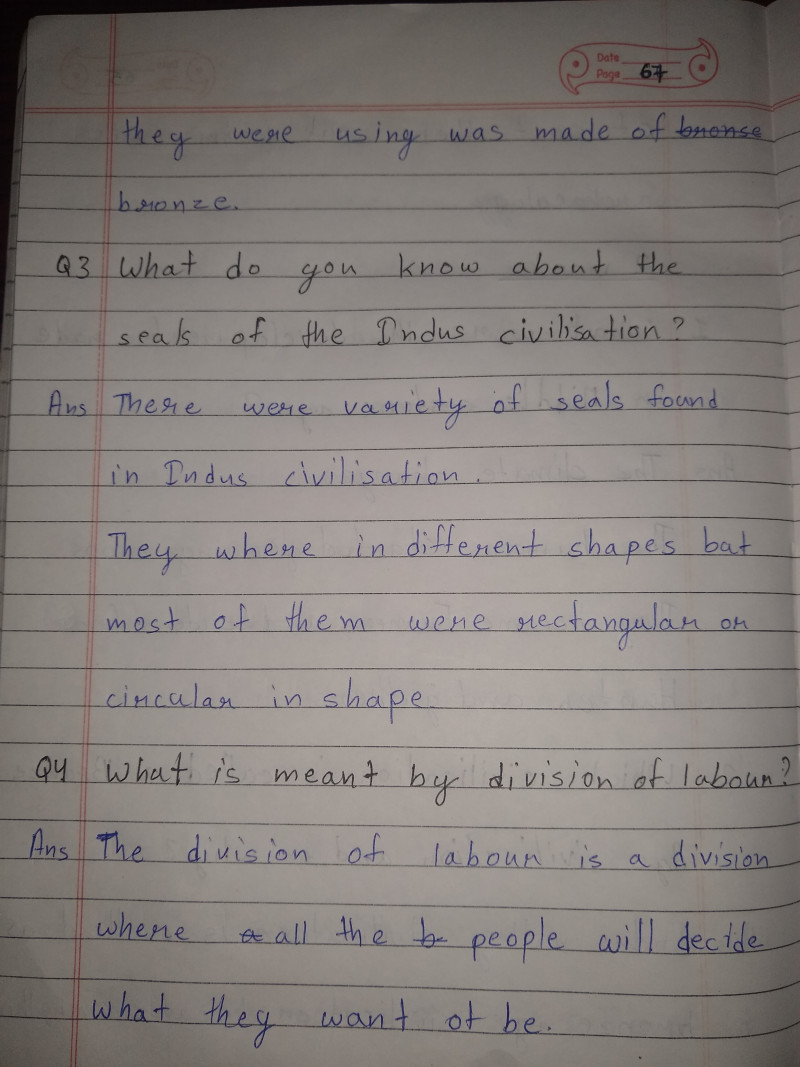 Date
Page 67
they were using was made of bronse
bronze.
Q3 What do you know about the
seals of the Indus civilisation?
Ans There were variety of seals found
in Indus civilisation.
They where in different shapes bat
most of them were rectangular or
circular in shape
Q4 What is meant by division of labour?
Ans The division of labour is a division
where a all the b people will decide
what they want ot be.